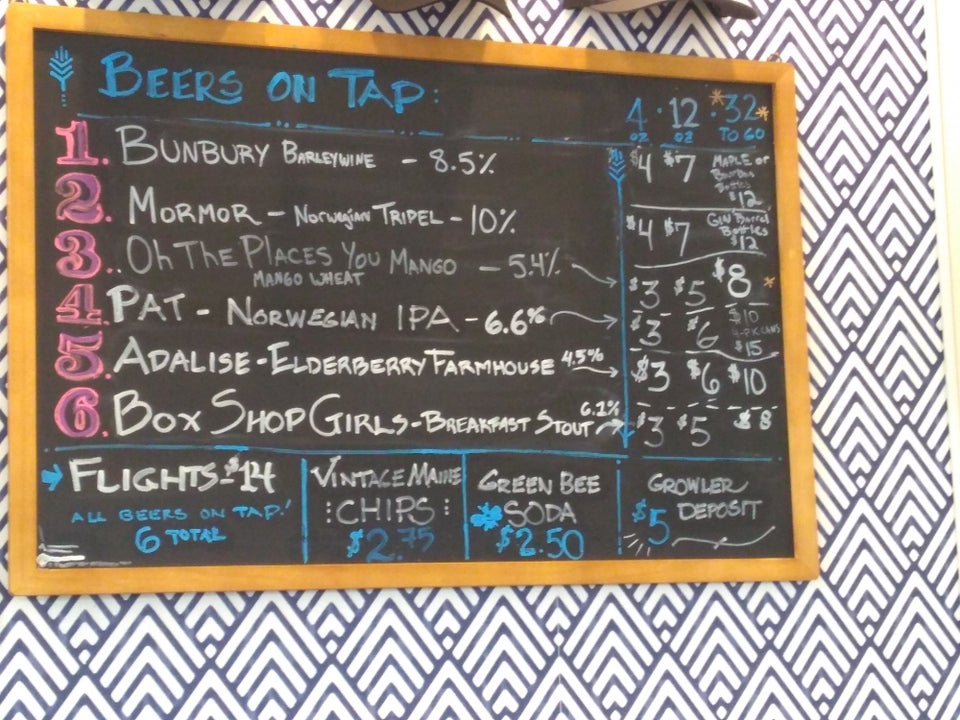 BEERS ON TAP:
4 · 12 · *32*
OZ OZ TO GO
1. BUNBURY BARLEYWINE - 8.5% $4 $7 MAPLE or
Bourbon
Bottles
$12
2. MORMOR - NORWEGIAN TRIPEL - 10% $4 $7 GIN Barrel
Bottles
$12
3.. Oh THE PLACES YOU MANGO - 5.4% $3 $5 $8 *
MANGO WHEAT
4. PAT - NORWEGIAN IPA - 6.6% $3 $6 $10
4-PK CANS
$15
5. ADALISE - ELDERBERRY FARMHOUSE 4.5% $3 $6 $10
6. BOX SHOP GIRLS - BREAKFAST STOUT 6.1% $3 $5 $8
FLIGHTS - $14
ALL BEERS ON TAP!
6 TOTAL
VINTAGE MAINE
CHIPS
$2.75
GREEN BEE
SODA
$2.50
GROWLER
DEPOSIT
$5